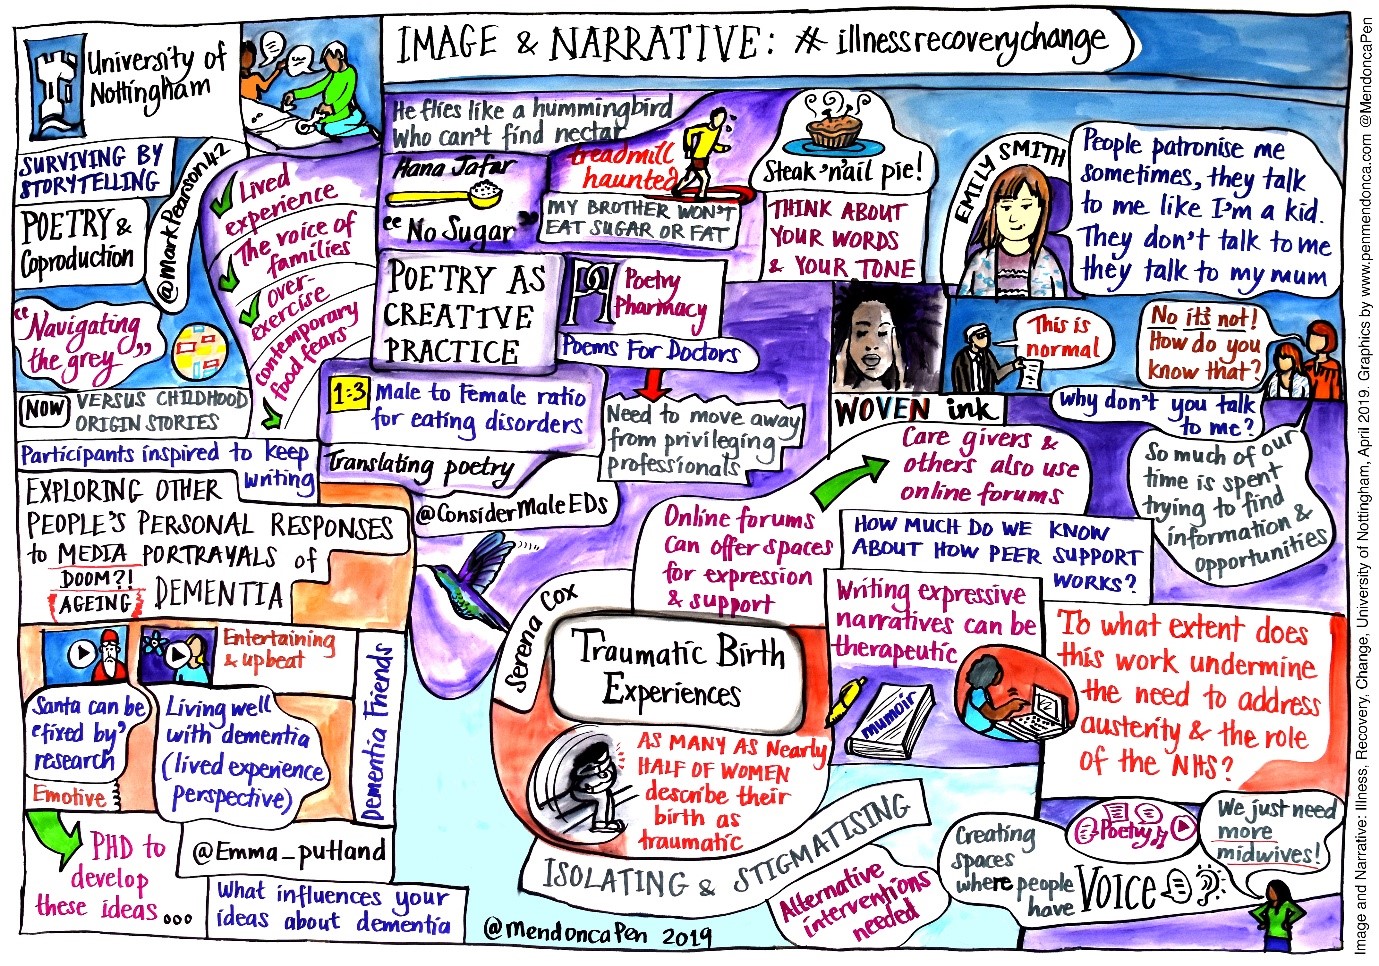 University of
Nottingham
IMAGE & NARRATIVE: #illnessrecoverychange
SURVIVING BY
STORYTELLING
POETRY &
Coproduction
@MarkPearson42
"Navigating
the grey"
Now VERSUS CHILDHOOD
ORIGIN STORIES
Participants inspired to keep
writing
Lived
experience
The voice of
families
over-
exercise
contemporary
food fears
He flies like a hummingbird
who can't find nectar
Hana Jafar
"No Sugar"
treadmill
haunted
MY BROTHER WON'T
EAT SUGAR OR FAT
Steak 'n'ail pie!
THINK ABOUT
YOUR WORDS
& YOUR TONE
POETRY AS
CREATIVE
PRACTICE
Poetry
Pharmacy
Poems For Doctors
Need to move away
from privileging
professionals
1:3 Male to Female ratio
for eating disorders
Translating poetry
@ConsiderMaleEDs
EMILY SMITH
People patronise me
sometimes, they talk
to me like I'm a kid.
They don't talk to me
they talk to my mum
This is
normal
No it's not!
How do you
know that?
Why don't you talk
to me?
So much of our
time is spent
trying to find
information &
opportunities
WOVEN ink
Care givers &
others also use
online forums
Online forums
can offer spaces
for expression
& support
HOW MUCH DO WE KNOW
ABOUT HOW PEER SUPPORT
WORKS?
Writing expressive
narratives can be
therapeutic
mumoir
To what extent does
this work undermine
the need to address
austerity & the role
of the NHS?
EXPLORING OTHER
PEOPLE'S PERSONAL RESPONSES
to MEDIA PORTRAYALS of
DOOM?!
AGEING
DEMENTIA
Entertaining
& upbeat
Santa can be
'fixed by'
research
Emotive
Living well
with dementia
(lived experience
perspective)
Dementia Friends
PHD to
develop
these ideas...
@Emma_putland
What influences your
ideas about dementia
Serena Cox
Traumatic Birth
Experiences
AS MANY AS Nearly
HALF OF WOMEN
describe their
birth as
traumatic
ISOLATING & STIGMATISING
Alternative
interventions
needed
@MendoncaPen 2019
Creating
spaces
where people
have VOICE
Poetry
We just need
more
midwives!
Image and Narrative: Illness, Recovery, Change, University of Nottingham, April 2019. Graphics by www.penmendonca.com @MendoncaPen